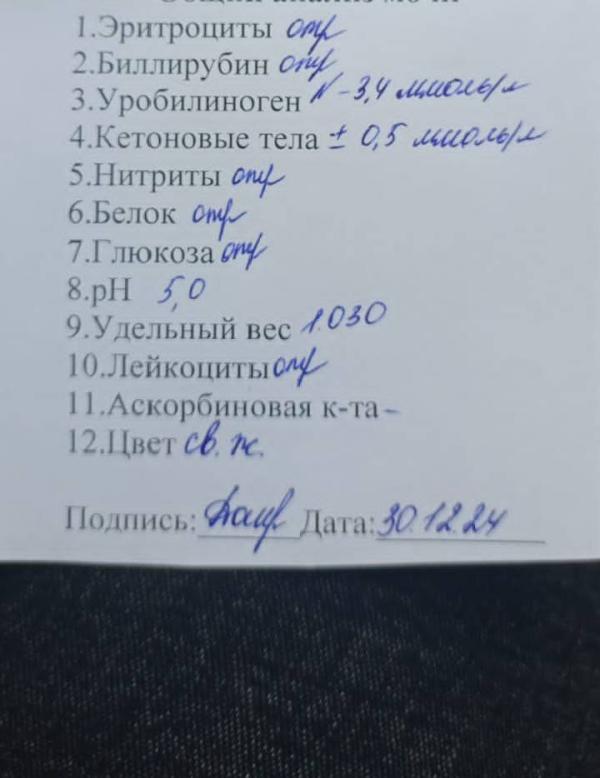 Общий анализ мочи
1.Эритроциты отр
2.Биллирубин отр
3.Уробилиноген N -3,4 ммоль/л
4.Кетоновые тела ± 0,5 ммоль/л
5.Нитриты отр
6.Белок отр
7.Глюкоза отр
8.pH 5,0
9.Удельный вес 1.030
10.Лейкоциты отр
11.Аскорбиновая к-та -
12.Цвет св. ж.
Подпись: Дата: 30.12.24